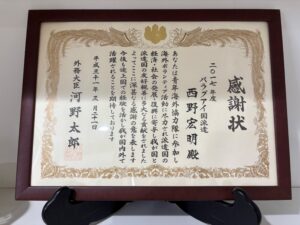 感謝状
二〇一七年度
パラグアイ国派遣
西野宏明殿
あなたは青年海外協力隊に参加し
海外ボランティア活動に尽力され派遣国の
経済・社会の発展・復興に寄与し我が国と
派遣国の友好親善に多大な貢献をされました
よってここに深甚なる感謝の意を表します
今後も途上国での経験を活かし我が国内外で
活躍されることを期待しております
平成三十一年三月二十一日
外務大臣 河野太郎